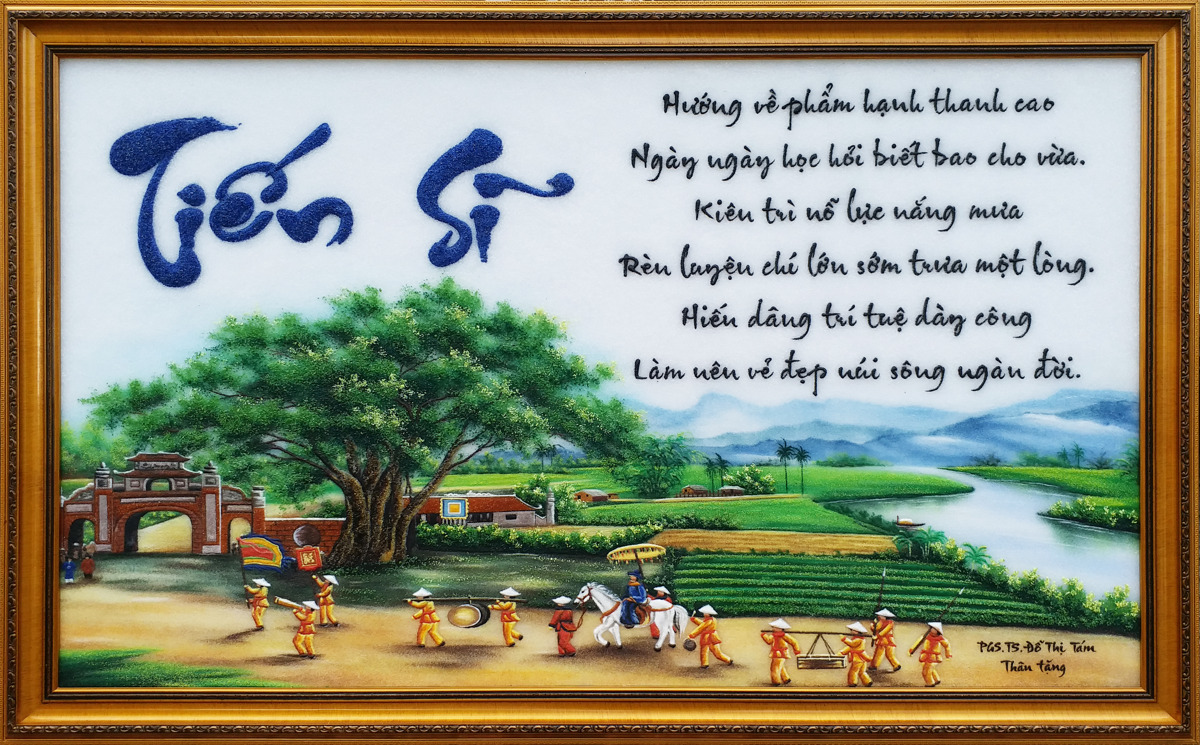 Tiến Sĩ
Hướng về phẩm hạnh thanh cao
Ngày ngày học hỏi biết bao cho vừa.
Kiên trì nỗ lực nắng mưa
Rèn luyện chí lớn sớm trưa một lòng.
Hiến dâng trí tuệ dày công
Làm nên vẻ đẹp núi sông ngàn đời.
PGS.TS.Đỗ Thị Tám
Thân tặng